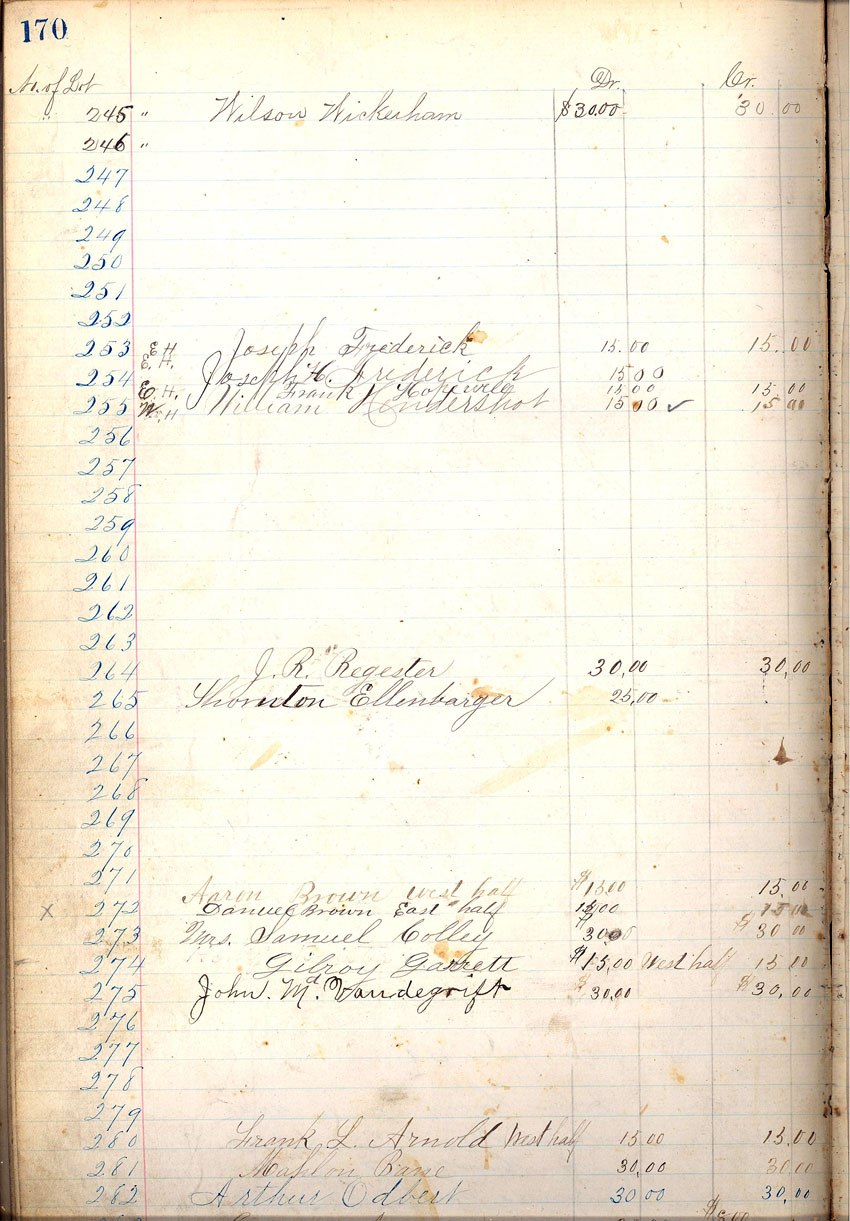 170
No. of Lot Dr. Cr.
" 245 " Wilson Wickerham $30.00 30.00
246 "
247
248
249
250
251
252
253 E H Joseph Frederick 15.00 15.00
254 E. H. Joseph H. Frederick 15 00
E. H. Frank Hopewell 15 00 15.00
255 W. H William Hendershot 15 00 ✓ 15 00
256
257
258
259
260
261
262
263
264 J. R. Regester 30,00 30,00
265 Thornton Ellenbarger 25,00
266
267
268
269
270
271
Aaron Brown west half $15.00 15.00
X 272 Daniel Brown East half 15,00 15 00
273 Mrs. Samuel Colley $30.00 $30 00
274 Gilroy Garrett $15,00 West half 15 00
275 John. Md. Vandegrift $30,00 $30,00
276
277
278
279
280 Frank L. Arnold West half 15 00 15.00
281 Mahlon Bane 30,00 30 00
282 Arthur Odbert 30 00 30,00